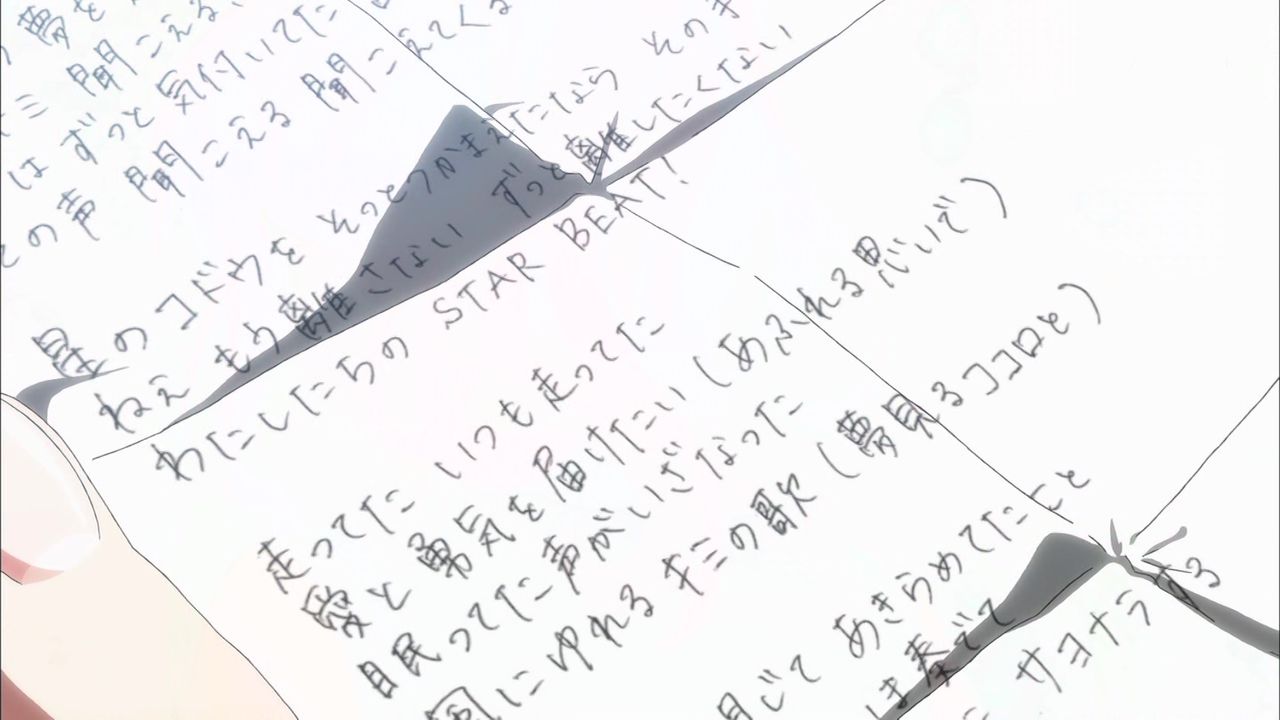 夢を
に 聞こえる
はずっと気付いてた
の声 聞こえる 聞こえてくる
星のコドウを そっとつかまえたなら その
ねえ もう離さない ずっと離したくない
わたしたちの STAR BEAT!
走ってた いつも走ってた
愛と勇気を届けたい(あふれる思いで)
眠ってた声がいざなった
風にゆれるキミの歌(夢見るココロと)
じて あきらめてたこと
は奏でて
サヨナラする